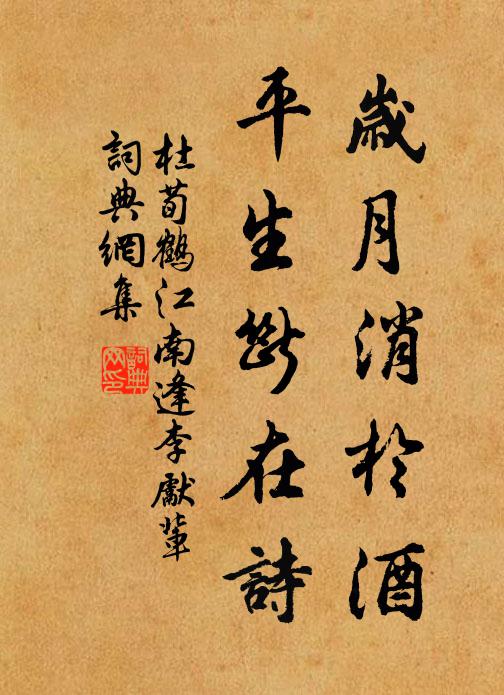 歲月消於酒
平生斷在詩
杜荀鶴江南逢李獻輩
詞典網集
詞典
网印